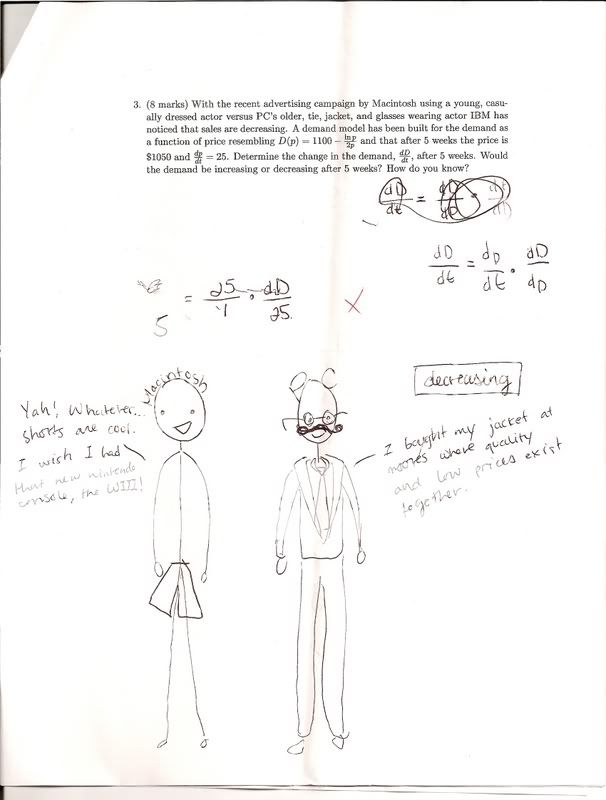 3. (8 marks) With the recent advertising campaign by Macintosh using a young, casu-
ally dressed actor versus PC's older, tie, jacket, and glasses wearing actor IBM has
noticed that sales are decreasing. A demand model has been built for the demand as
a function of price resembling D(p) = 1100 − ln p/2p and that after 5 weeks the price is
$1050 and dp/dt = 25. Determine the change in the demand, dD/dt, after 5 weeks. Would
the demand be increasing or decreasing after 5 weeks? How do you know?
dD/dt =
dD/dt = dp/dt · dD/dp
5 = 25/1 · dD/25
X
decreasing
Macintosh
Yah! Whatever...
shorts are cool.
I wish I had
that new nintendo
console, the WIII!
I bought my jacket at
moores where quality
and low prices exist
together.